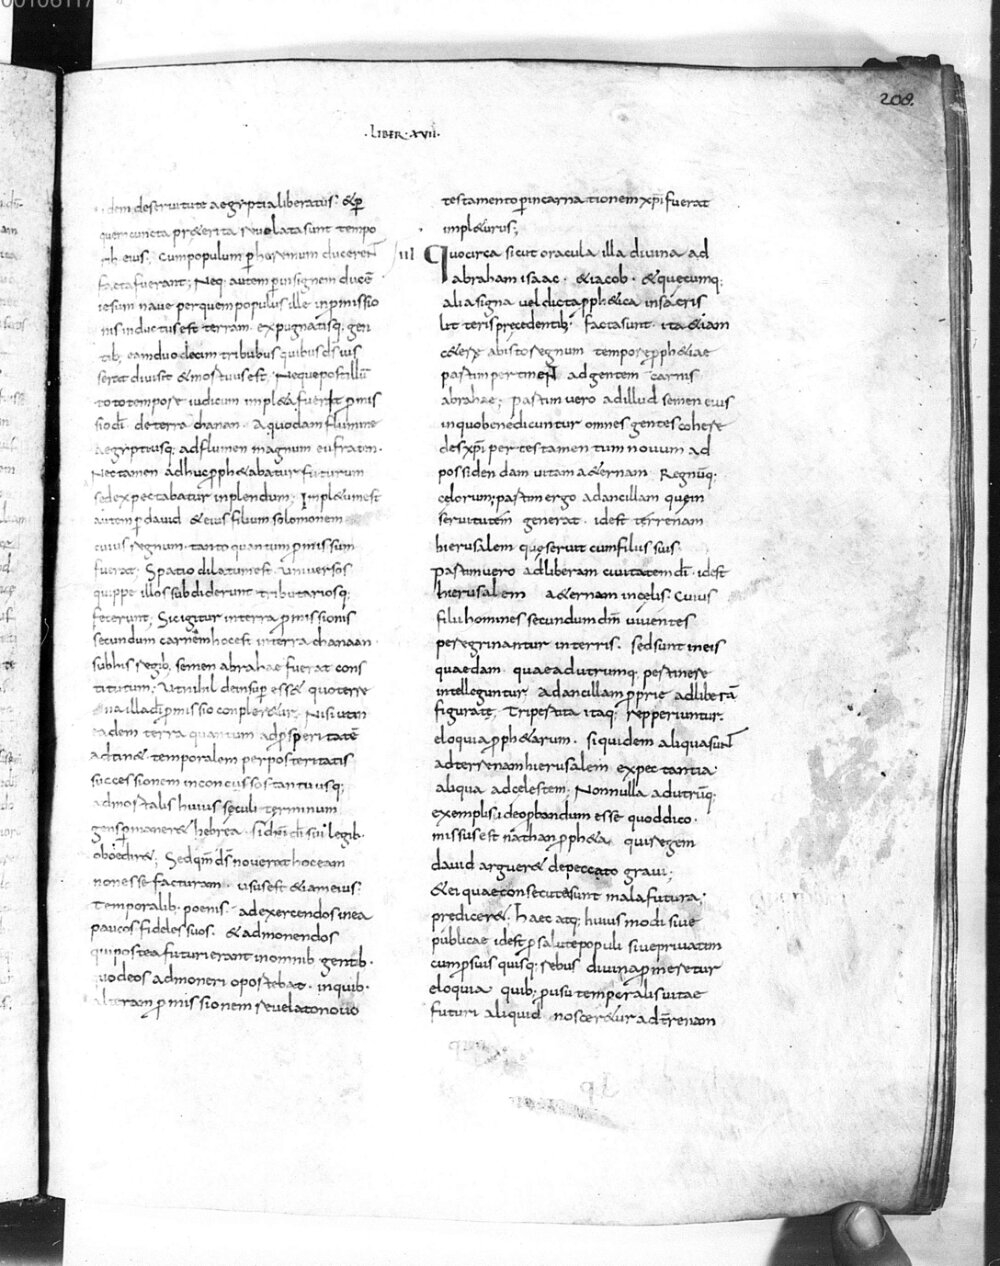 208.
·LIBER·XVII·
dem deseruitute aegyptia liberatus. &p
quem cuncta pr&erita reuelata sunt tempo
eius. cumpopulum pheremum duceren
facta fuerant; Neq; autem pinsignem ducē
iesum naue perquem populus ille inpmissio
nis inductus est terram. expugnatisq; gen
tib; eam duodecim tribubus quibus ds ius
serat diuisit & mortuus est. Neque post illū
toto tempore iudicum impl&a fuerat pmis
sio di de terra chanan. A quodam flumine
aegyptiusq; ad flumen magnum eufraten.
Nec tamen adhuc pph&abatur futurum
sed expectabatur inplendum; Impl&um est
autem p dauid & eius filium solomonem
cuius regnum. tanto quantum pmissum
fuerat; Spatio dilatum est. Uniuersos
quippe illos subdiderunt tributariosq;
fecerunt; Sic igitur in terra pmissionis
secundum carnem hoc est in terra chanaan
sub his regib; semen abrahae fuerat cons
titutum; Ut nihil deinsup ess& quo terre
na illa di pmissio conpler&ur. Nisi ut in
eadem terra quantum ad psperitatē
adtin& temporalem per posteritatis
successionem inconcusso statu usq;
ad mortalis huius sęculi terminum
gens pmaner& hebrea. si dni di sui legib.
oboedir&; Sed qm ds nouerat hoc eam
non esse facturam. usus est &iam eius.
temporalib; poenis. ad exercendos in ea
paucos fideles suos. & admonendos
qui postea futuri erant in omnib gentib.
quos eos admoneri oportebat. in quib.
alteram pmissionem reuelato nouo
testamento p incarnationem xpi fuerat
impl&urus;
III Quocirca sicut oracula illa diuina ad
abraham isaac. & iacob. & quęcumq;
alia signa uel dicta pph&ica in sacris
litteris pręcedentib; facta sunt. ita &iam
c&erę ab isto regnum tempore pph&iae
partim pertinen ad gentem carnis
abrahae; partim uero ad illud semen eius
in quo benedicuntur omnes gentes cohere
des xpi per testamentum nouum ad
possidendam uitam a&ernam. Regnūq;
celorum; partim ergo ad ancillam quęin
seruitutem generat. idest terrenam
hierusalem quę seruit cum filiis suis.
partim uero ad liberam ciuitatem di. idest
hierusalem a&ernam in celis. Cuius
filii homines secundum dm uiuentes
peregrinantur in terris. sed sunt in eis
quaedam. quae ad utrumq; pertinere
intelleguntur. ad ancillam pprie ad liberā
figurate; Tripertita itaq; repperiuntur.
eloquia pph&arum. siquidem aliqua sunt
ad terrenam hierusalem expectantia.
aliqua ad celestem; Nonnulla ad utrūq;
exemplis uideo pbandum esse quod dico.
missus est nathan pph&a. qui regem
dauid arguer& de peccato graui;
& ei quae consecuta sunt mala futura;
predicer&. haec atq; huius modi siue
publicae idest p salute populi siue priuatim
cum p suis quisq; rebus diuina pmeretur
eloquia quib; p usu temporalis uitae
futuri aliquid noscer&ur ad trenam